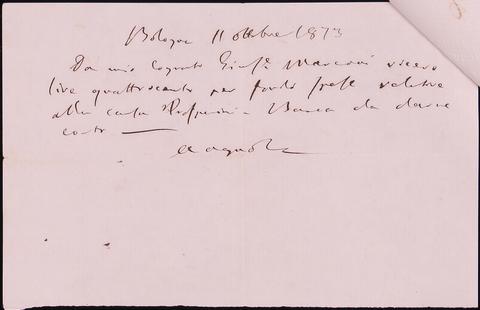 Bologna 11 ottobre 1873
Da mio Cognato Gius.e Marconi ricevo
lire quattrocento per fondo spese relative
alla causa Banca da darne
conto